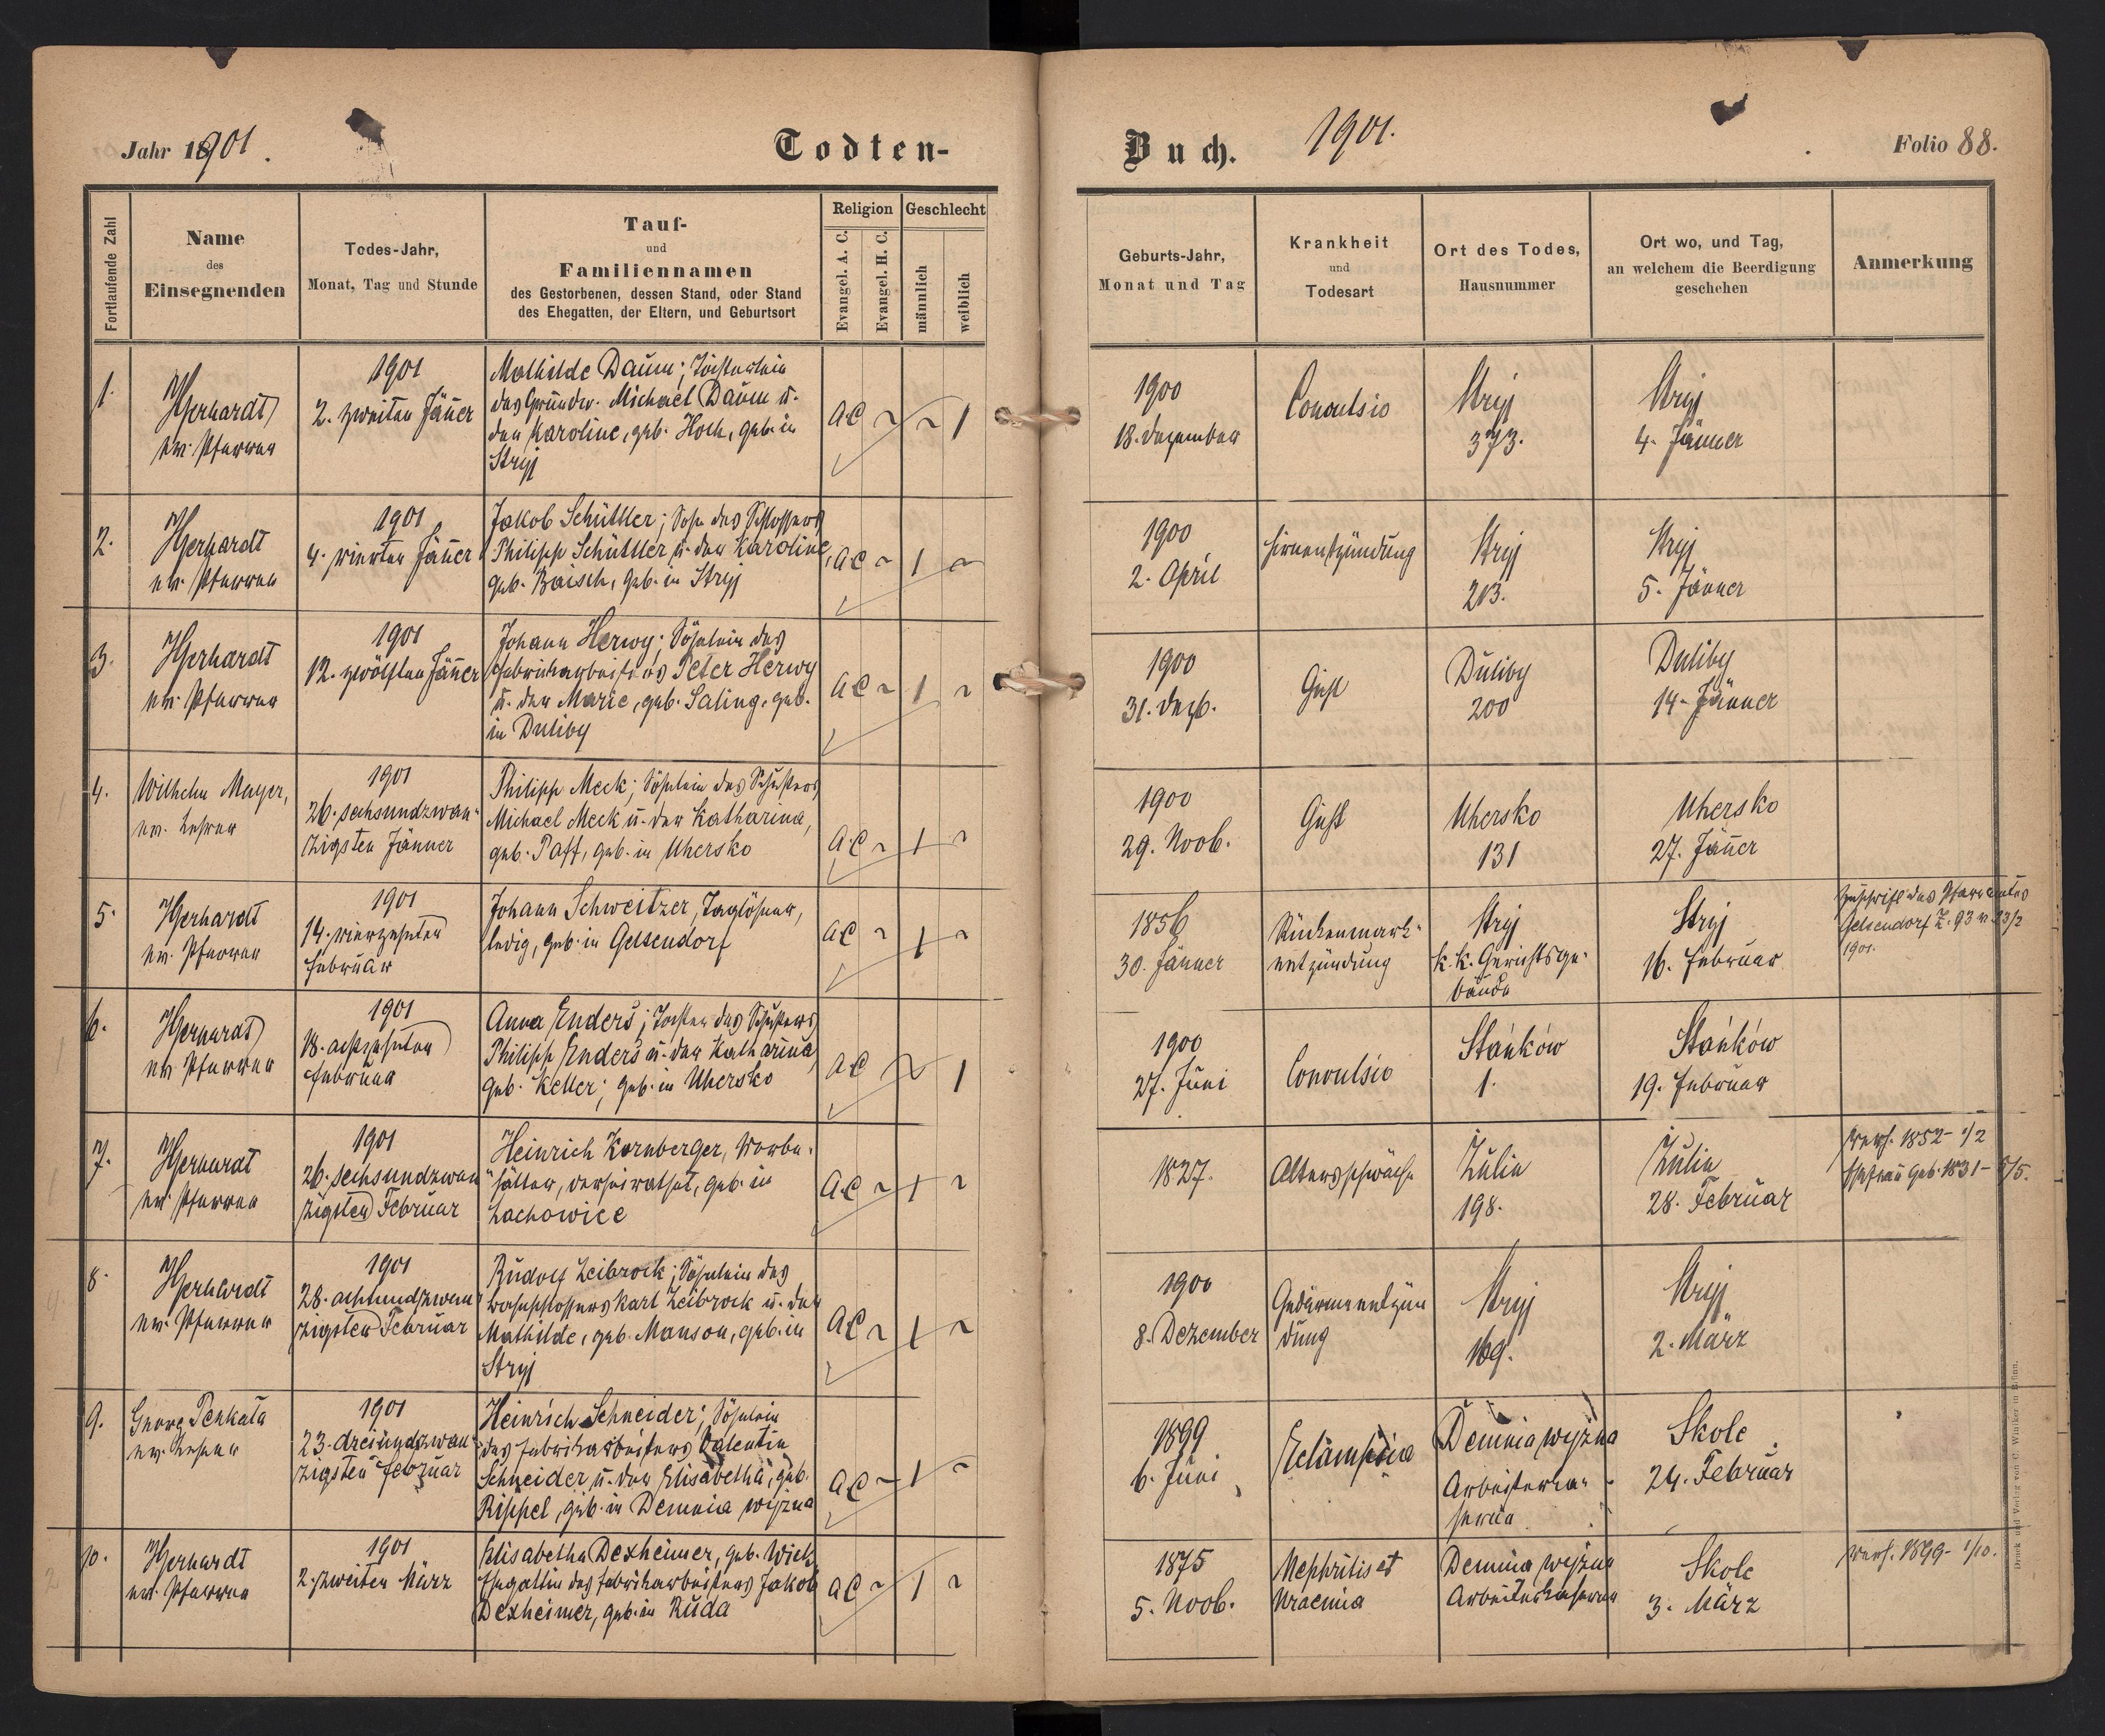 Jahr 1901.
Todten-
Buch.
1901.
Folio 88.
Fortlaufende Zahl
Name
des
Einsegnenden
Todes-Jahr,
Monat, Tag und Stunde
Tauf-
und
Familiennamen
des Gestorbenen, dessen Stand, oder Stand
des Ehegatten, der Eltern, und Geburtsort
Religion
Evangel. A. C.
Evangel. H. C.
Geschlecht
männlich
weiblich
Geburts-Jahr,
Monat und Tag
Krankheit
und
Todesart
Ort des Todes,
Hausnummer
Ort wo, und Tag,
an welchem die Beerdigung
geschehen
Anmerkung
1.
Gerhardt
ev. Pfarrer
1901
2. zweiten Jänner
Mathilde Daum; Töchterlein
des Grundw. Michael Daum u.
der Karoline, geb. Hoch, geb. in
Stryj
AC ~ ~ 1
1900
18. Dezember
Convulsio
Stryj
373.
Stryj
4. Jänner
2.
Gerhardt
ev. Pfarrer
1901
4. vierten Jänner
Jakob Schüttler; Sohn des Schlossers
Philipp Schüttler u. der Karoline,
geb. Baisch, geb. in Stryj
AC ~ 1 ~
1900
2. April
Hirnentzündung
Stryj
213.
Stryj
5. Jänner
3.
Gerhardt
ev. Pfarrer
1901
12. zwölften Jänner
Johann Herwy; Söhnlein des
Fabriksarbeiters Peter Herwy
u. der Marie, geb. Saling, geb.
in Duliby
AC ~ 1 ~
1900
31. Dezb.
Duliby
200
Duliby
14. Jänner
4.
Wilhelm Mayer,
ev. Lehrer
1901
26. sechsundzwan-
zigsten Jänner
Philipp Meck; Söhnlein des Schusters
Michael Meck u. der Katharina,
geb. Paff, geb. in Uhersko
AC ~ 1 ~
1900
29. Novb.
Uhersko
131
Uhersko
27. Jänner
5.
Gerhardt
ev. Pfarrer
1901
14. vierzehnten
Februar
Johann Schweitzer, Taglöhner,
ledig, geb. in Gelsendorf
AC ~ 1 ~
1856
30. Jänner
Rückenmark-
entzündung
Stryj
k. k. Gerichtsge-
bäude
Stryj
16. Februar
Zuschrift des Pfarramtes
Gelsendorf Z. 93 v. 23/2
1901.
6.
Gerhardt
ev. Pfarrer
1901
18. achtzehnten
Februar
Anna Enders; Tochter des Schusters
Philipp Enders u. der Katharina,
geb. Keller; geb. in Uhersko
AC ~ 1
1900
27. Juni
Convulsio
Stańków
1.
Stańków
19. Februar
7.
Gerhardt
ev. Pfarrer
1901
26. sechsundzwan-
zigsten Februar
Heinrich Kornberger,
verheiratet, geb. in
Lachowice
AC ~ 1 ~
1827.
Altersschwäche
Żulin
198.
Żulin
28. Februar
verh. 1852 - 1/2
Ehefrau geb. 1831 - 8/5.
8.
Gerhardt
ev. Pfarrer
1901
28. achtundzwan-
zigsten Februar
Rudolf Leibrock; Söhnlein des
Karl Leibrock u. der
Mathilde, geb. Manson, geb. in
Stryj
AC ~ 1 ~
1900
8. Dezember
Gedärmentzün
dung
Stryj
169.
Stryj
2. März
9.
Georg Penkala
ev. Lehrer
1901
23. dreiundzwan-
zigsten Februar
Heinrich Schneider; Söhnlein
des Fabriksarbeiters Valentin
Schneider u. der Elisabetha, geb.
Rippel, geb. in Demnia wyżna
AC ~ 1 ~
1899
6. Juni
Eclampsia
Demnia wyżna
Arbeiterka-
serne
Skole
24. Februar
10.
Gerhardt
ev. Pfarrer
1901
2. zweiten März
Elisabetha Dexheimer, geb. Wick,
Ehegattin des Fabriksarbeiters Jakob
Dexheimer, geb. in Ruda
AC ~ 1 ~
1875
5. Novb.
Nephritis et
Uraemia
Demnia wyżna
Arbeiterkaserne
Skole
3. März
verh. 1899 - 1/10.